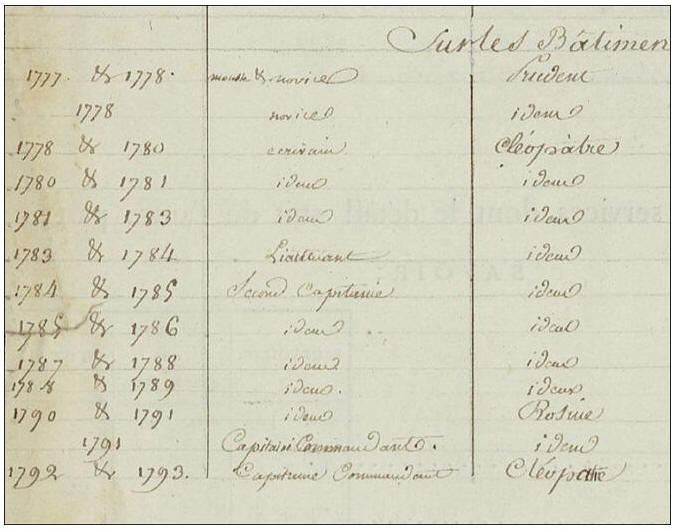 Sur les Bâtimen
1777. & 1778. mousse & novice Prudent
1778 novice idem
1778 & 1780 ecrivain Cléopâtre
1780 & 1781 idem idem
1781 & 1783 idem idem
1783 & 1784 Lieutenant idem
1784 & 1785 Second Capitaine idem
1785 & 1786 idem idem
1787 & 1788 idem idem
1788 & 1789 idem. idem
1790 & 1791 idem Rosine
1791 Capitaine Commandant. idem
1792 & 1793. Capitaine Commandant Cléopatre